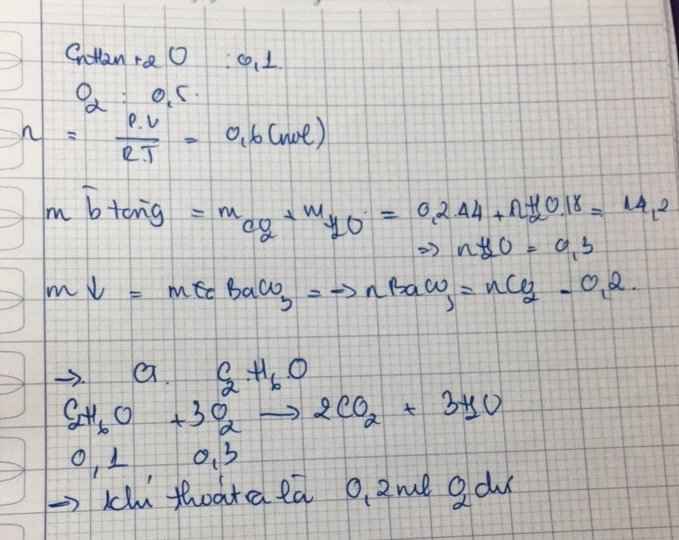 CnH2n+2O : 0,1
O2 : 0,5.
n = P.V / R.T = 0,6 (mol)
m b tăng = mCO2 + mH2O = 0,2.44 + nH2O.18 = 14,2
=> nH2O = 0,3
m ↓ = BaCO3 = -> nBaCO3 = nCO2 = 0,2.
-> a. C2H6O
C2H6O + 3O2 -> 2CO2 + 3H2O
0,1 0,3
-> khí thoát ra là 0,2 mol O2 dư